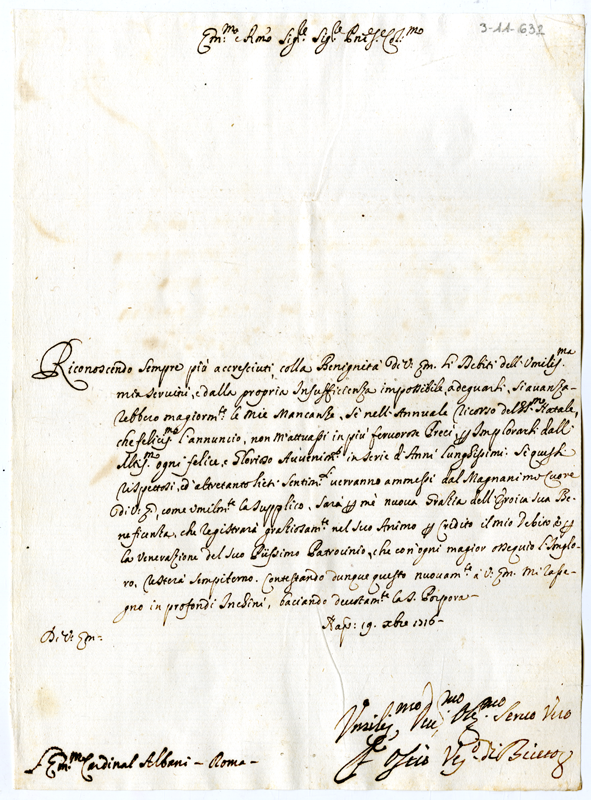 3-11-632
Em.mo e Rmo Sig.re Sig.re Pne Col.mo
Riconoscendo sempre più accresciuti colla Benignità di V. Em. li Debiti dell'Umilis.ma
mia servitù, e dalla propria Insufficienza impossibile adeguarli, si avanza-
rebbero magiorm.te le mie Mancanze, si nell'Annuale ricorso del SS.mo Natale,
che felicis.mo l'annuncio, non m'attuassi in più fervorose Preci p Implorarli dall'
Altis.mo ogni felice, e Glorioso Avvenim.to in serie d'Anni lunghissimi. Si questi
rispettosi, ed altretanto lieti sentim.ti verranno ammessi dal Magnanimo Cuore
di V. Em, come umilm.te la supplico, sarà p me nuova Grazia dell'Eroica sua Be-
neficenza, che registrarà graziosam.te nel suo Animo p Credito il mio debito, e p
la venerazione del suo Pijssimo Patrocinio, che con ogni magior ossequio l'Inglo-
ro, resterà sempiterno. Contestando dunque questo nuovam.te à V. Em. mi rasse-
gno in profondi Inchini, baciando devotam.te la S. Porpora-
Nap: 19. Xbre 1716-
Di V. Em=
Umilis.mo Div.mo Obl.mo Servo Vero
F. Vesc.o di
S.r Em.mo Cardinal Albani - Roma-